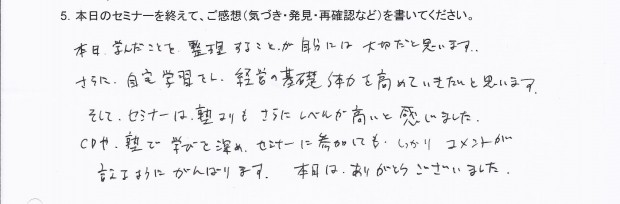 5. 本日のセミナーを終えて、ご感想(気づき・発見・再確認など)を書いてください。
本日、学んだことを、整理することが自分には大切だと思います。
さらに、自宅学習をし、経営の基礎体力を高めていきたいと思います。
そして、セミナーは、塾よりもさらにレベルが高いと感じました。
CDや、塾で学びを深め、セミナーに参加しても、しっかりコメントが
言えるようにがんばります。 本日は、ありがとうございました。